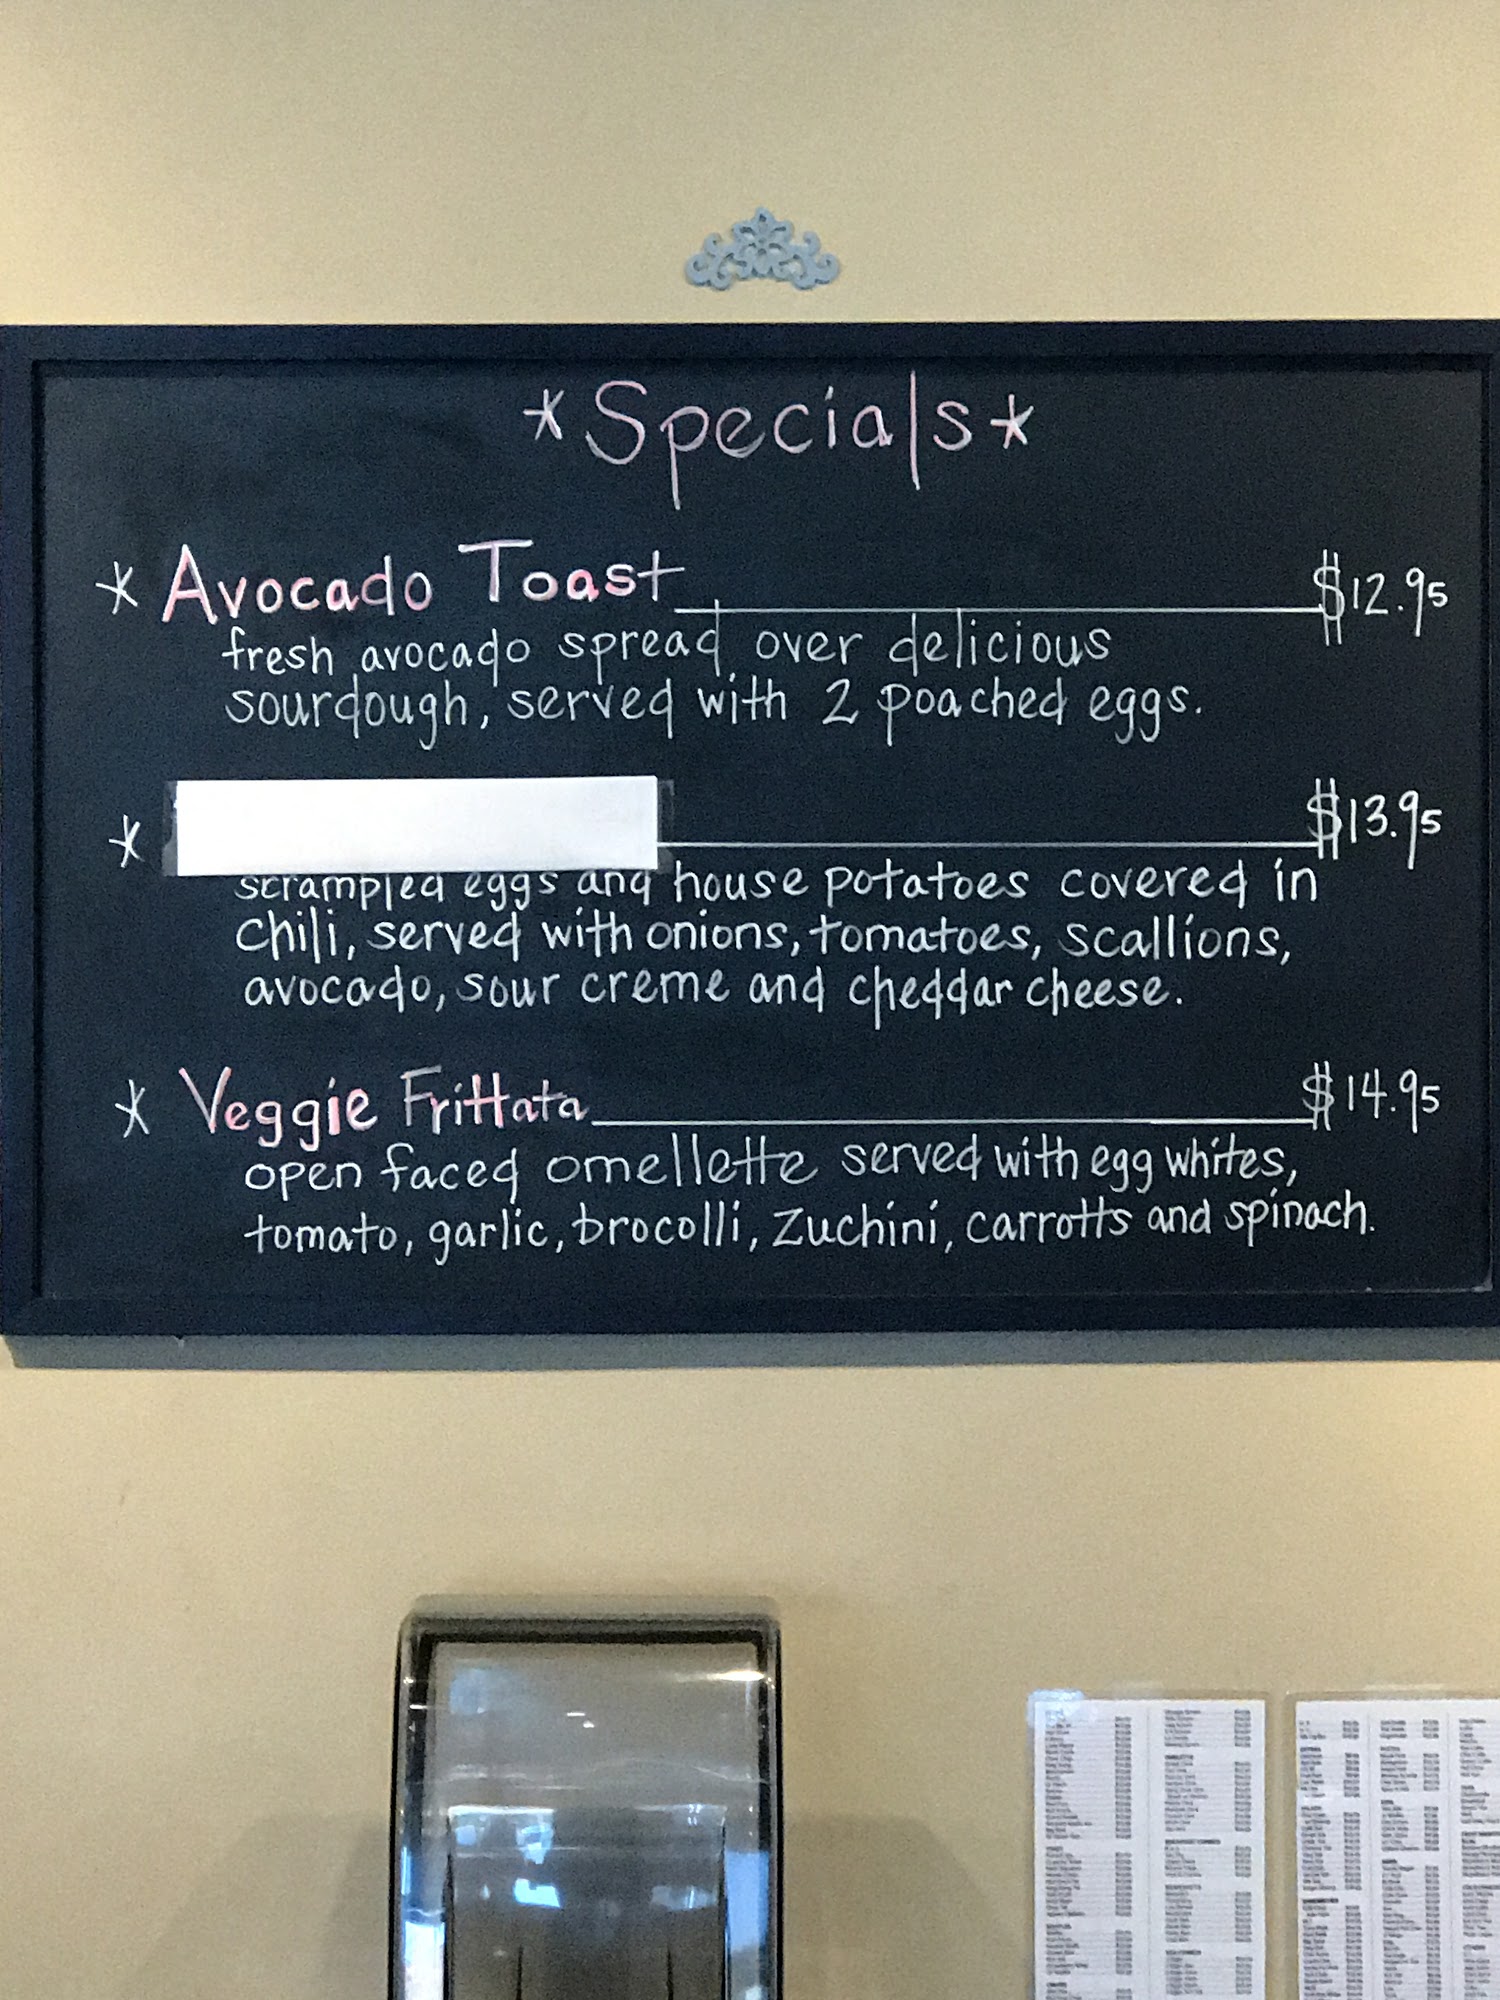 *Specials*
* Avocado Toast $12.95
fresh avocado spread over delicious
sourdough, served with 2 poached eggs.
* $13.95
scrampled eggs and house potatoes covered in
chili, served with onions, tomatoes, scallions,
avocado, sour creme and cheddar cheese.
* Veggie Frittata $14.95
open faced omellette served with egg whites,
tomato, garlic, brocolli, zuchini, carrotts and spinach.